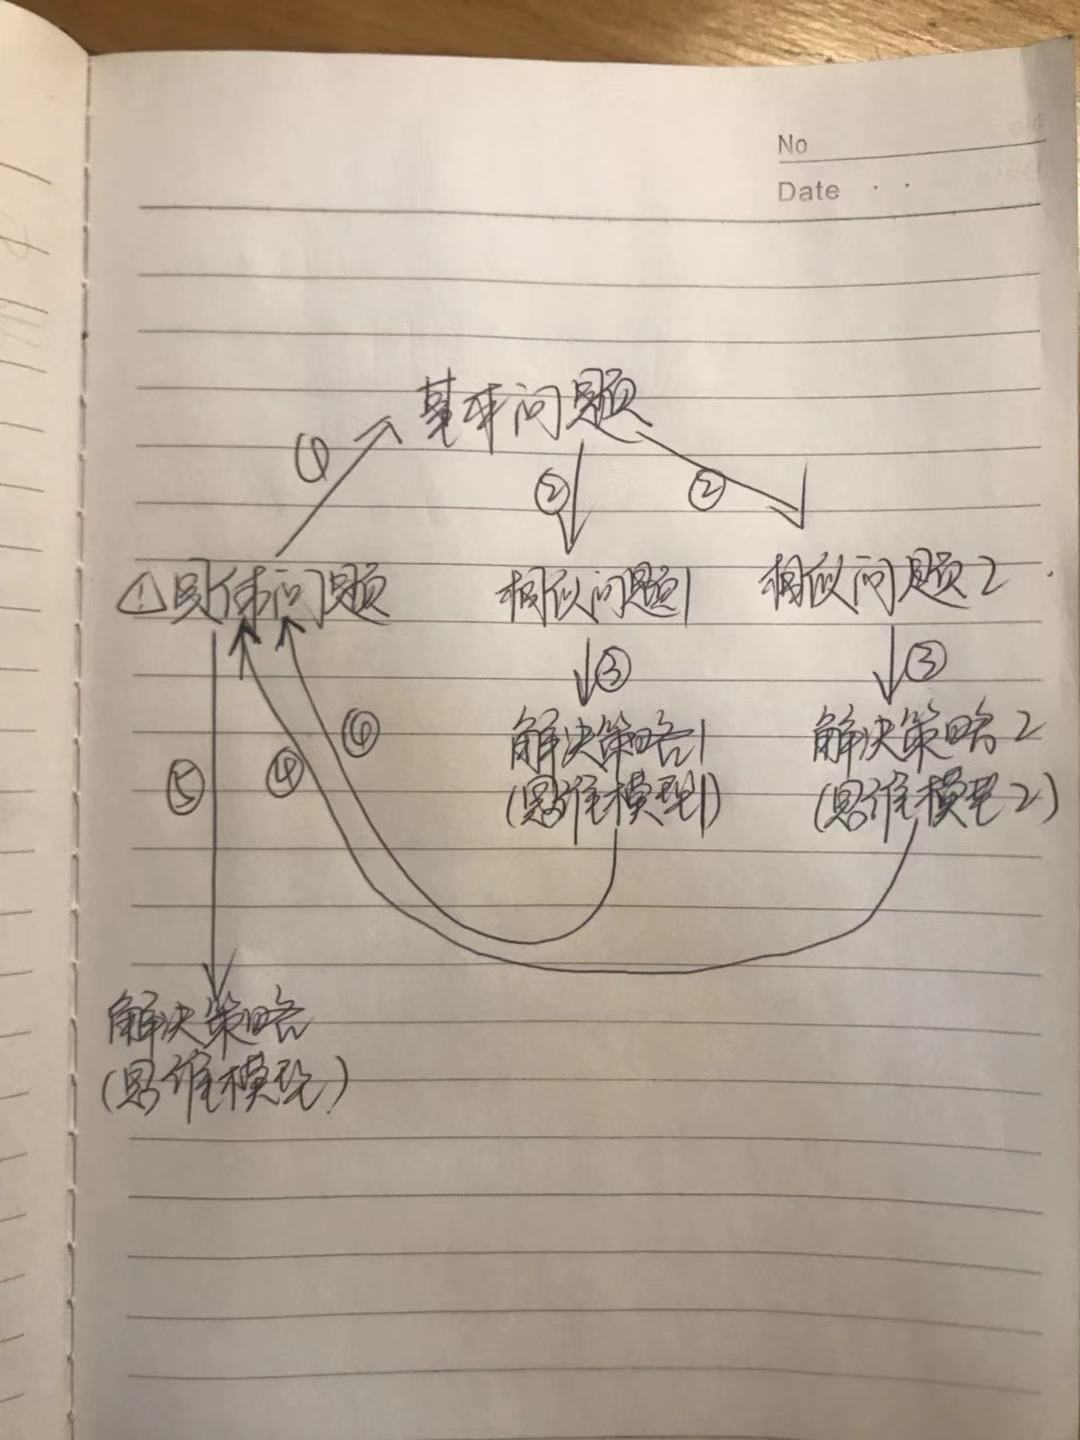 No
Date
基本问题
①
②
②
①具体问题
相似问题1
相似问题2
③
③
解决策略1
(思维模型1)
解决策略2
(思维模型2)
④
④
⑤
解决策略
(思维模型)